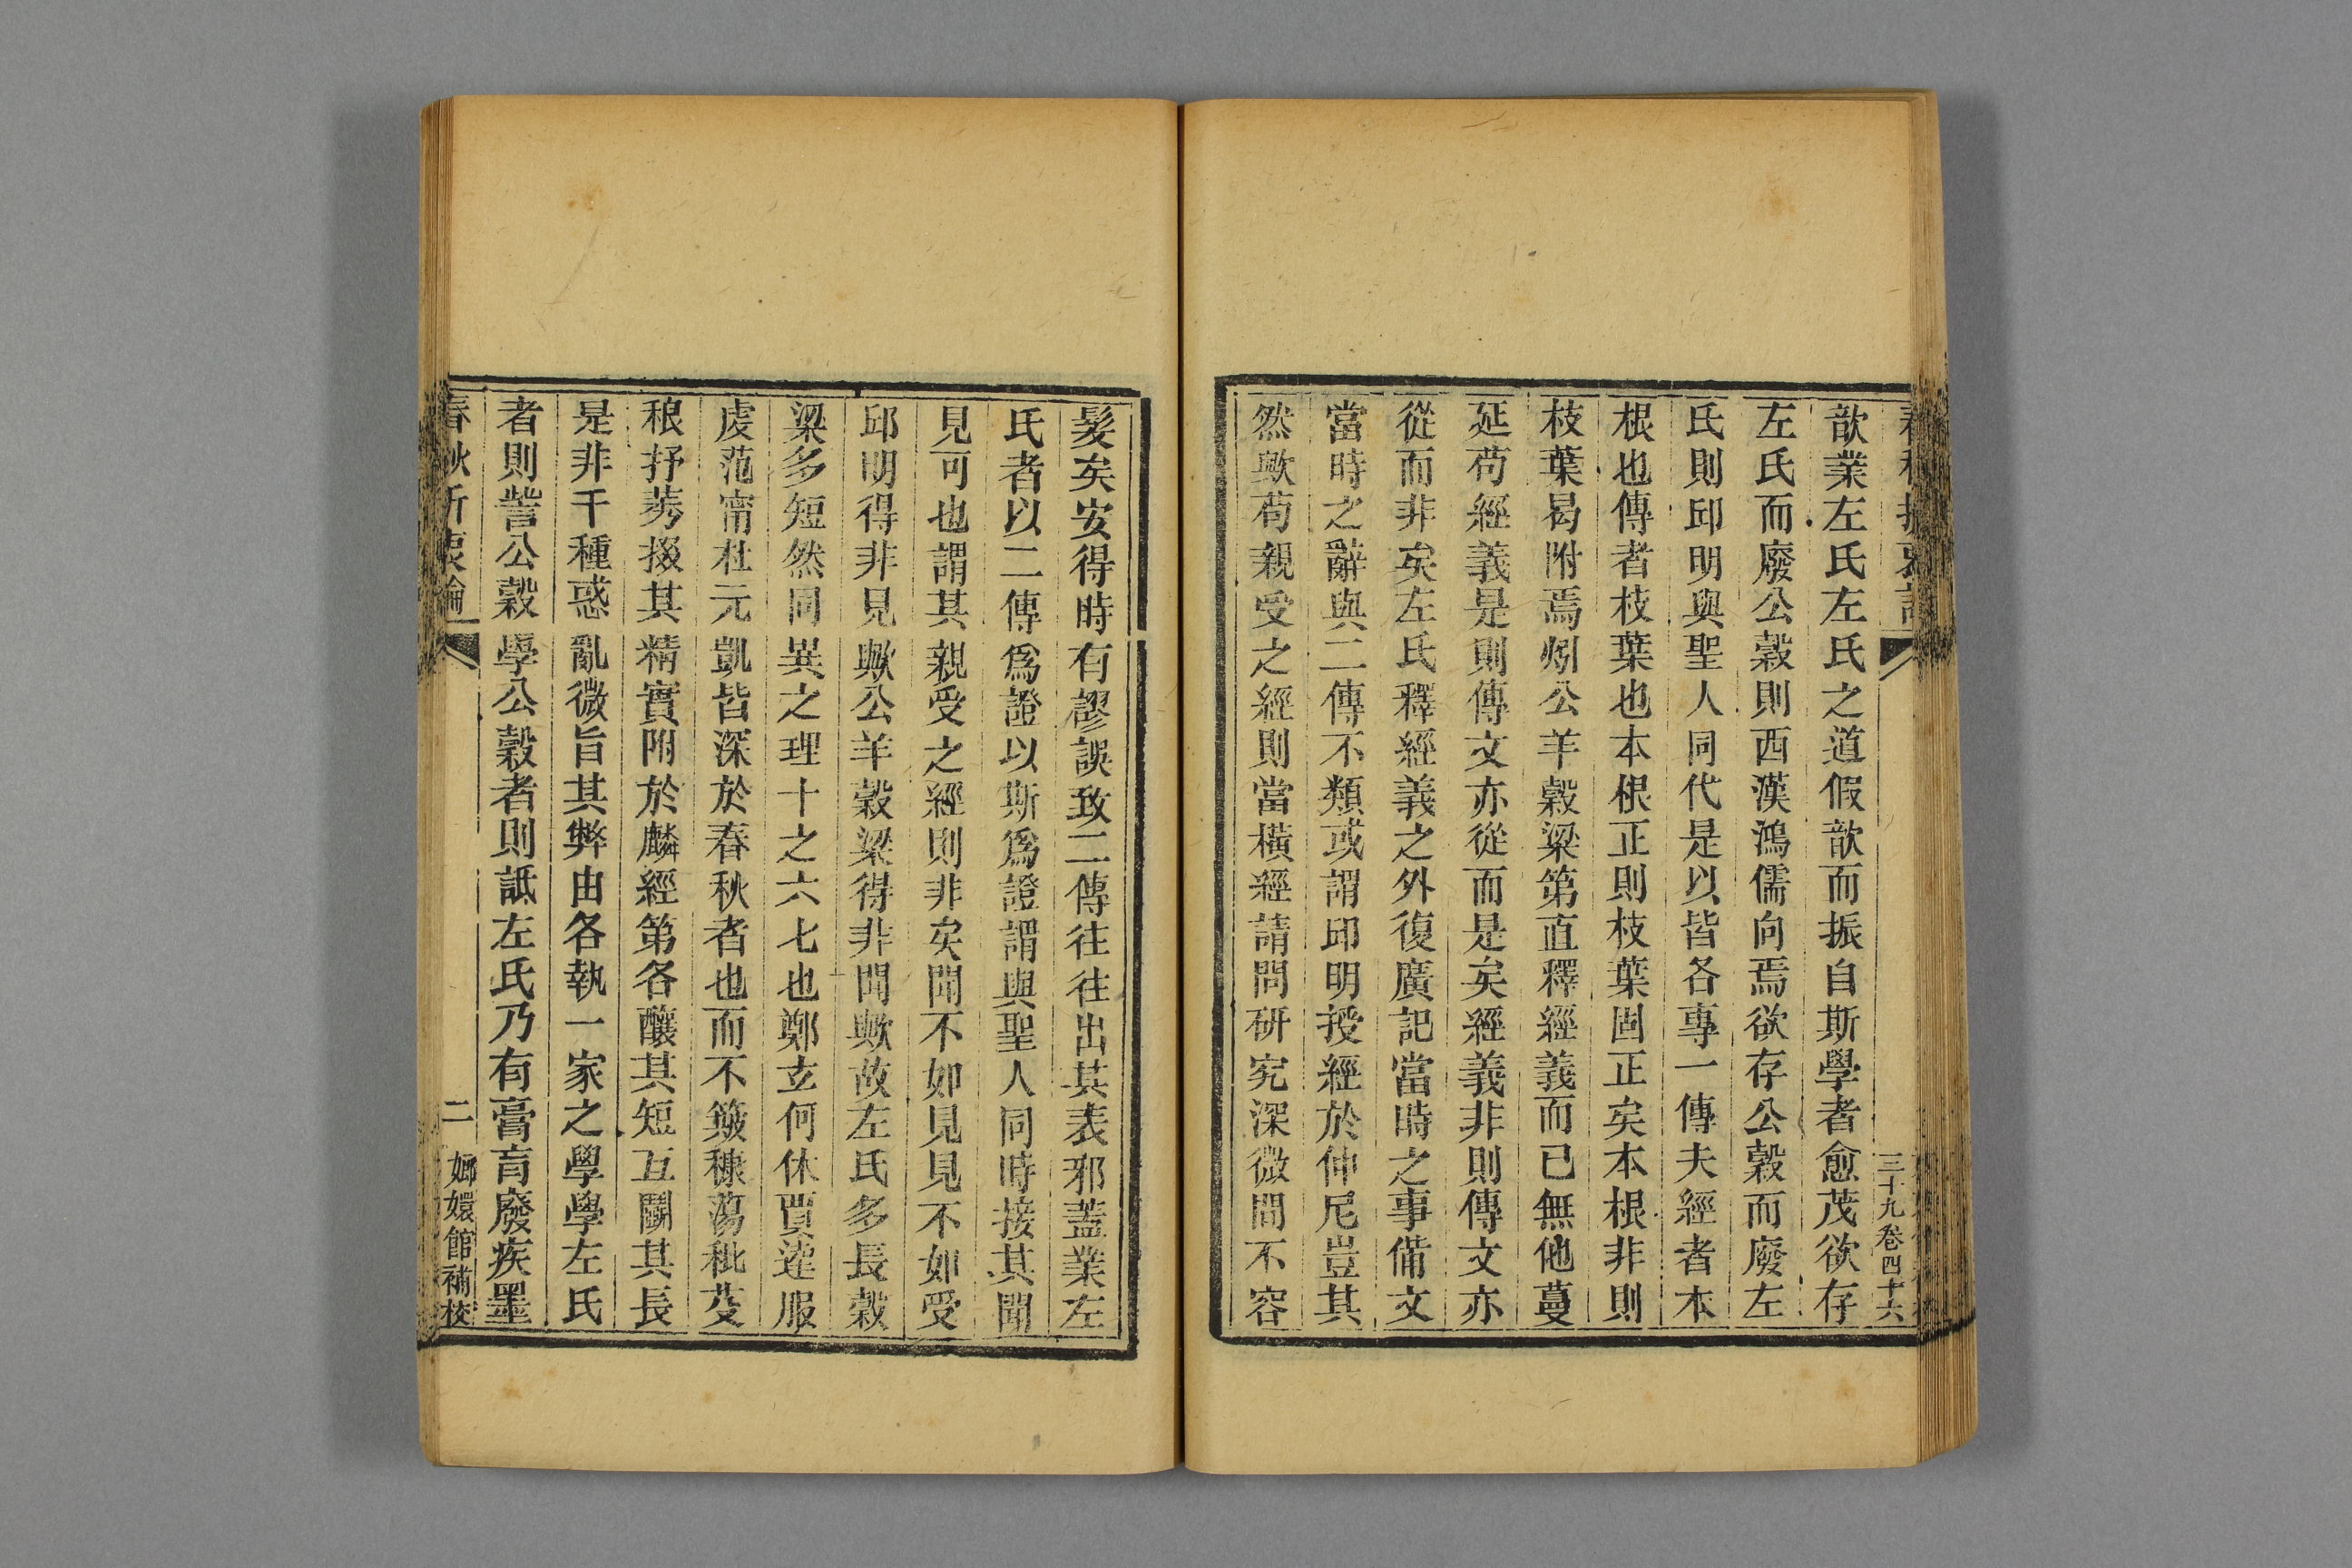 三十九卷四十六
歆業左氏左氏之道假歆而振自斯學者愈茂欲存
左氏而廢公穀則西漢鴻儒向焉欲存公穀而廢左
氏則邱明與聖人同代是以皆各專一傳夫經者本
根也傳者枝葉也本根正則枝葉固正矣本根非則
枝葉曷附焉矧公羊穀梁第直釋經義而已無他蔓
延苟經義是則傳文亦從而是矣經義非則傳文亦
從而非矣左氏釋經義之外復廣記當時之事備文
當時之辭與二傳不類或謂邱明授經於仲尼豈其
然歟苟親受之經則當橫經請問研究深微間不容
髮矣安得時有謬誤致二傳往往出其表邪蓋業左
氏者以二傳為證以斯為證謂與聖人同時接其聞
見可也謂其親受之經則非矣聞不如見見不如受
邱明得非見歟公羊穀梁得非聞歟故左氏多長穀
梁多短然同異之理十之六七也鄭玄何休賈逵服
虔范甯杜元凱皆深於春秋者也而不簸糠蕩秕芟
稂抒莠掇其精實附於麟經第各釀其短互鬬其長
是非千種惑亂微旨其弊由各執一家之學學左氏
者則訾公穀學公穀者則詆左氏乃有膏肓廢疾墨
春秋折衷論 二 嫏嬛館補校